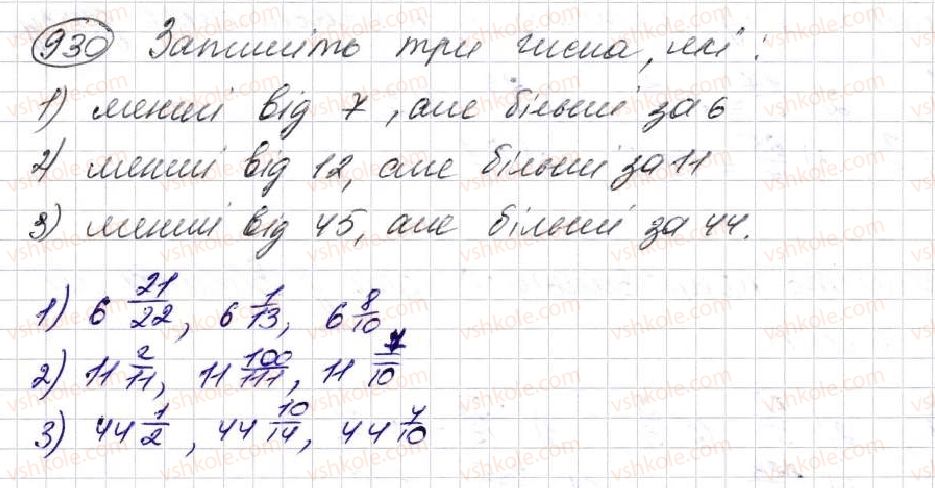 930 Запишіть три числа, які :
1) менші від 7, але більші за 6
2) менші від 12, але більші за 11
3) менші від 45, але більші за 44.
1) 6 21/22, 6 1/13, 6 8/10
2) 11 2/11, 11 100/111, 11 7/10
3) 44 1/2, 44 10/14, 44 7/10